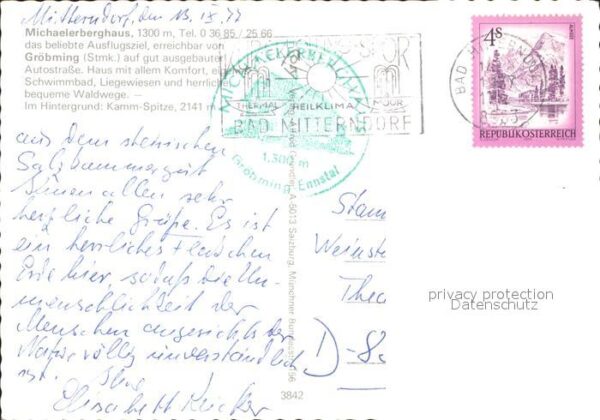 Mitterndorf, den 13. IX. 77
Michaelerberghaus, 1300 m, Tel. 0 36 85 / 25 66
das beliebte Ausflugsziel, erreichbar von
Gröbming (Stmk.) auf gut ausgebauter
Autostraße. Haus mit allem Komfort, ei
Schwimmbad, Liegewiesen und herrlic
bequeme Waldwege. —
Im Hintergrund: Kamm-Spitze, 2141 m
MICHAELERBERGHAUS
1.300 m
Gröbming Ennstal
THERMAL HEILKLIMA MOOR
BAD MITTERNDORF
BAD MITTERNDORF
4S
REPUBLIK ÖSTERREICH
aus dem steirischen
Salzkammergut
Ihnen allen sehr
herzliche Grüße. Es ist
ein herrliches Fleckchen
Erde hier, sodaß die Un-
menschlichkeit der
Menschen angesichts der
Natur völlig unverständlich
ist. Ihre
Elisabeth
A-5013 Salzburg, Münchner Bundesstraße 156
3842
Stam
Weinste
Thea
D-8
privacy protection
Datenschutz